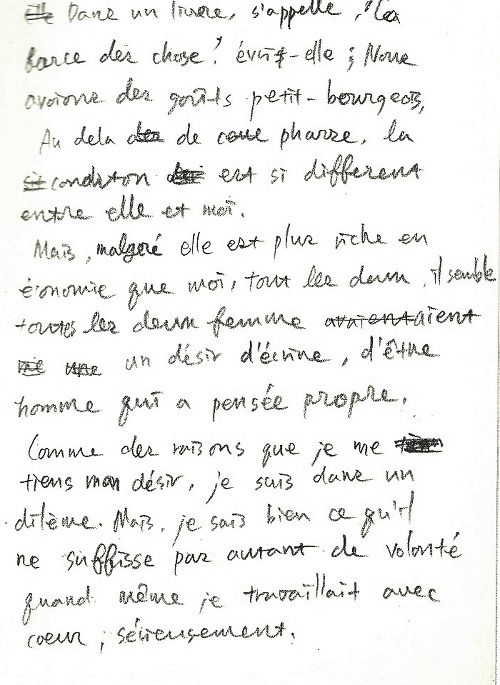 Dans un livre, s'appelle, "La
force des chose", évrit-elle ; Nous
avoions des goûts petit-bourgeois,
Au dela de ceue pharze. la
conditon est si different
entre elle et moi.
Mais, malgoré elle est plus riche en
éconowie que moi, tout les deux, il semble
toutes les deux femme aient
un désir d'écrire, d'être
homme qui a pensée propre.
Comme des raisons que je me
tiens mon désir, je suis dans un
dilème. Mais, je sais bien ce qu'il
ne suffisse par autant de volonté
quand même je travaillait avec
coeur, sérieusement.